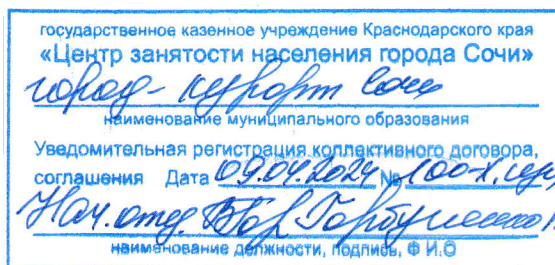 государственное казенное учреждение Краснодарского края
«Центр занятости населения города Сочи»
город-курорт Сочи
наименование муниципального образования
Уведомительная регистрация коллективного договора,
соглашения Дата 09.04.2024 № 100-Х.
Нач. отд. Горбуненко
наименование должности, подпись, Ф И.О